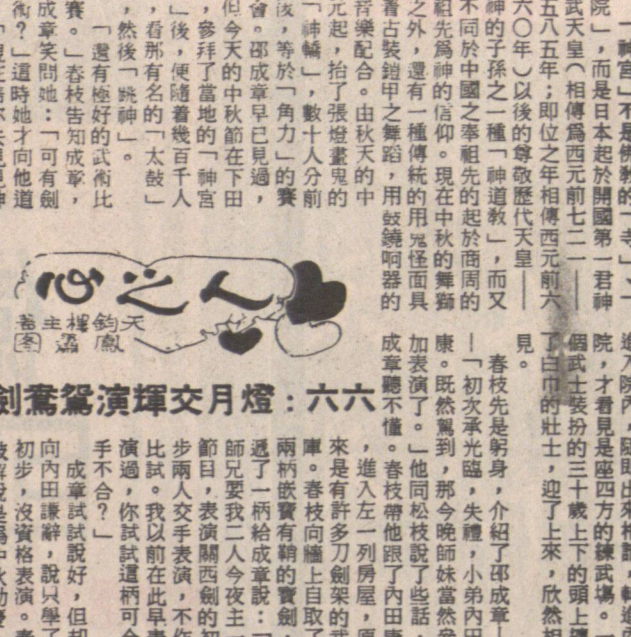 「神宮」不是佛教的「寺」、「
院」,而是日本起於開國第一君神
武天皇(相傳爲西元前七二一——
五八五年;即位之年相傳西元前六
六〇年)以後的尊敬歷代天皇——
神的子孫之一種「神道教」,而又
不同於中國之奉祖先的起於商周的
祖先爲神的信仰。現在中秋的舞獅
之外,還有一種傳統的用鬼怪面具
着古裝鎧甲之舞蹈,用鼓鐃呵器的
音樂配合。由秋天的中
元起,抬了張燈畫鬼的
「神轎」,數十人分前
後,等於「角力」的賽
會。邵成章早已見過,
但今天的中秋節在下田
,參拜了當地的「神宮
」後,便隨着幾百千人
,看那有名的「太鼓」
,然後「跳神」。
「還有極好的武術比
賽。」春枝告知成章,
成章笑問她:「可有劍
術?」這時她才向他道
人之心
天鈞樨主著
鳳 圖
六六:燈月交輝演鴛鴦劍
進入院內,隨即出來相
院,才看見是座四方的練武塲。
個武士裝扮的三十歲上下的頭上
了白巾的壯士,迎了上來,欣然
見。
春枝先是躬身,介紹了邵成章
—「初次承光臨,失禮,小弟內田
康。既然駕到,那今晚師妹當然
加表演了。」他同松枝說了些話,
成章聽不懂。春枝帶他跟了內田康
,進入左一列房屋,原
來是有許多刀劍架的武
庫。春枝向牆上自取了
兩柄嵌寶有鞘的寶劍,
遞了一柄給成章說:「
師兄要我二人今夜主
節目,表演關西劍的初
步兩人交手表演,不作
比試。我以前在此早表
演過,你試試這柄可合
手不合?」
成章試試說好,但却
向內田謙辭,說只學了
初步,沒資格表演。